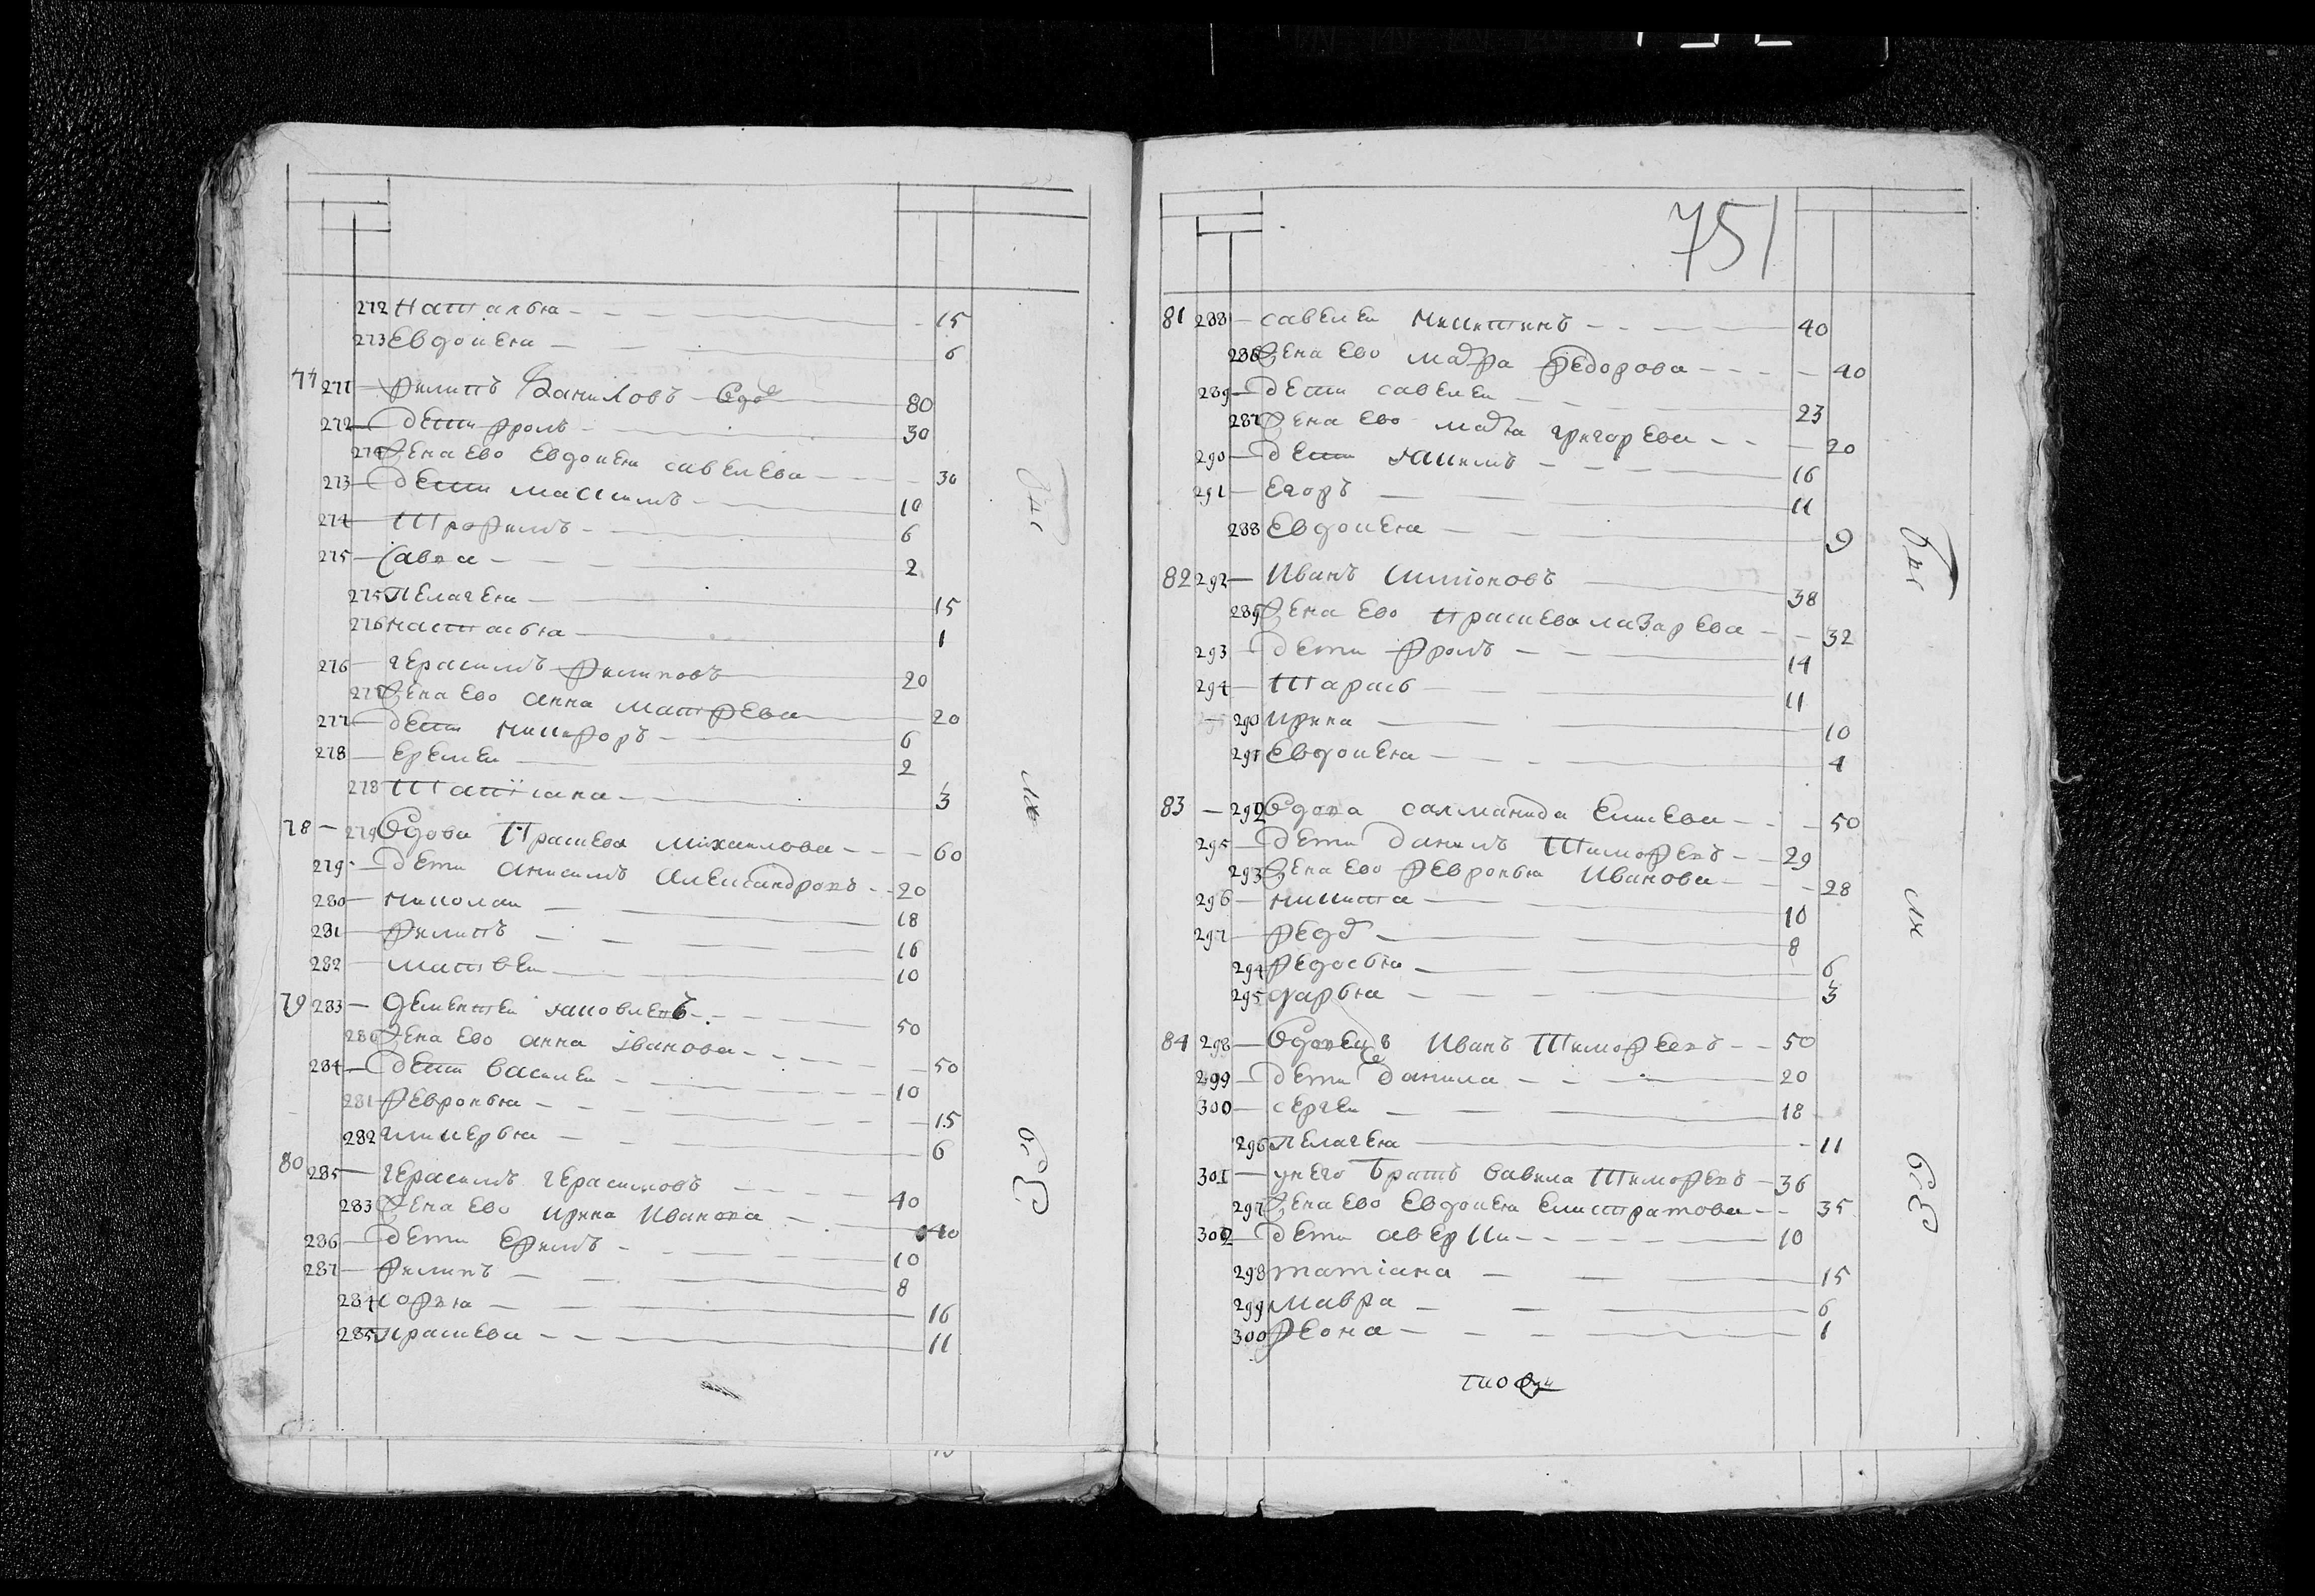 272 Наталья 15
273 Евдокея 6
77 271 Филипъ Даниловъ вдо 80
272 дети Фролъ 30
274 Жена ево Евдокея савелева 30
273 дети максимъ 10
274 Трофимъ 6
275 Савва 2
275 Пелагея 15
276 настасья 1
276 герасимъ Филиповъ 20
277 Жена ево анна матфеева 20
277 дети никифоръ 6
278 еремеи 2
278 Татïана 3
78 279 Вдова Прасковя михаилова 60
279 дети анисимъ александровъ 20
280 николаи 18
281 Филипъ 16
282 матвеи 10
79 283 дементеи яковлевъ 50
280 Жена ево анна iванова 50
284 дети василеи 10
281 Февронья 15
282 гликерья 6
80 285 герасимъ герасимовъ 40
283 Жена ево ирина Иванова 40
286 дети Ефимъ 10
287 Филипъ 8
284 софья 16
285 прасковя 11
751
81 288 савелеи никитинъ 40
286 Жена ево мавра Федорова 40
289 дети савелеи 23
287 Жена ево григорева 20
290 дети якимъ 16
291 Егоръ 11
288 Евдокея 9
82 292 Иванъ Симiоновъ 38
289 Жена ево Прасковя лазарева 32
293 дети Фролъ 14
294 Тарасъ 11
290 ирина 10
291 Евдокея 4
83 292 Вдова саламанида Елисева 50
295 дети данилъ Тимофеевъ 29
293 Жена ево Февронья Иванова 28
296 никита 10
297 Федо 8
294 Федосья 6
295 дарья 3
84 298 Вдовецъ Иванъ Тимофеевъ 50
299 дети данила 20
300 сергеи 18
296 пелагея 11
301 у него братъ вавила Тимофевъ 36
297 Жена ево Евдокея Елистратова 35
302 дети аверки 10
298 татiана 15
299 мавра 6
300 Феона 1